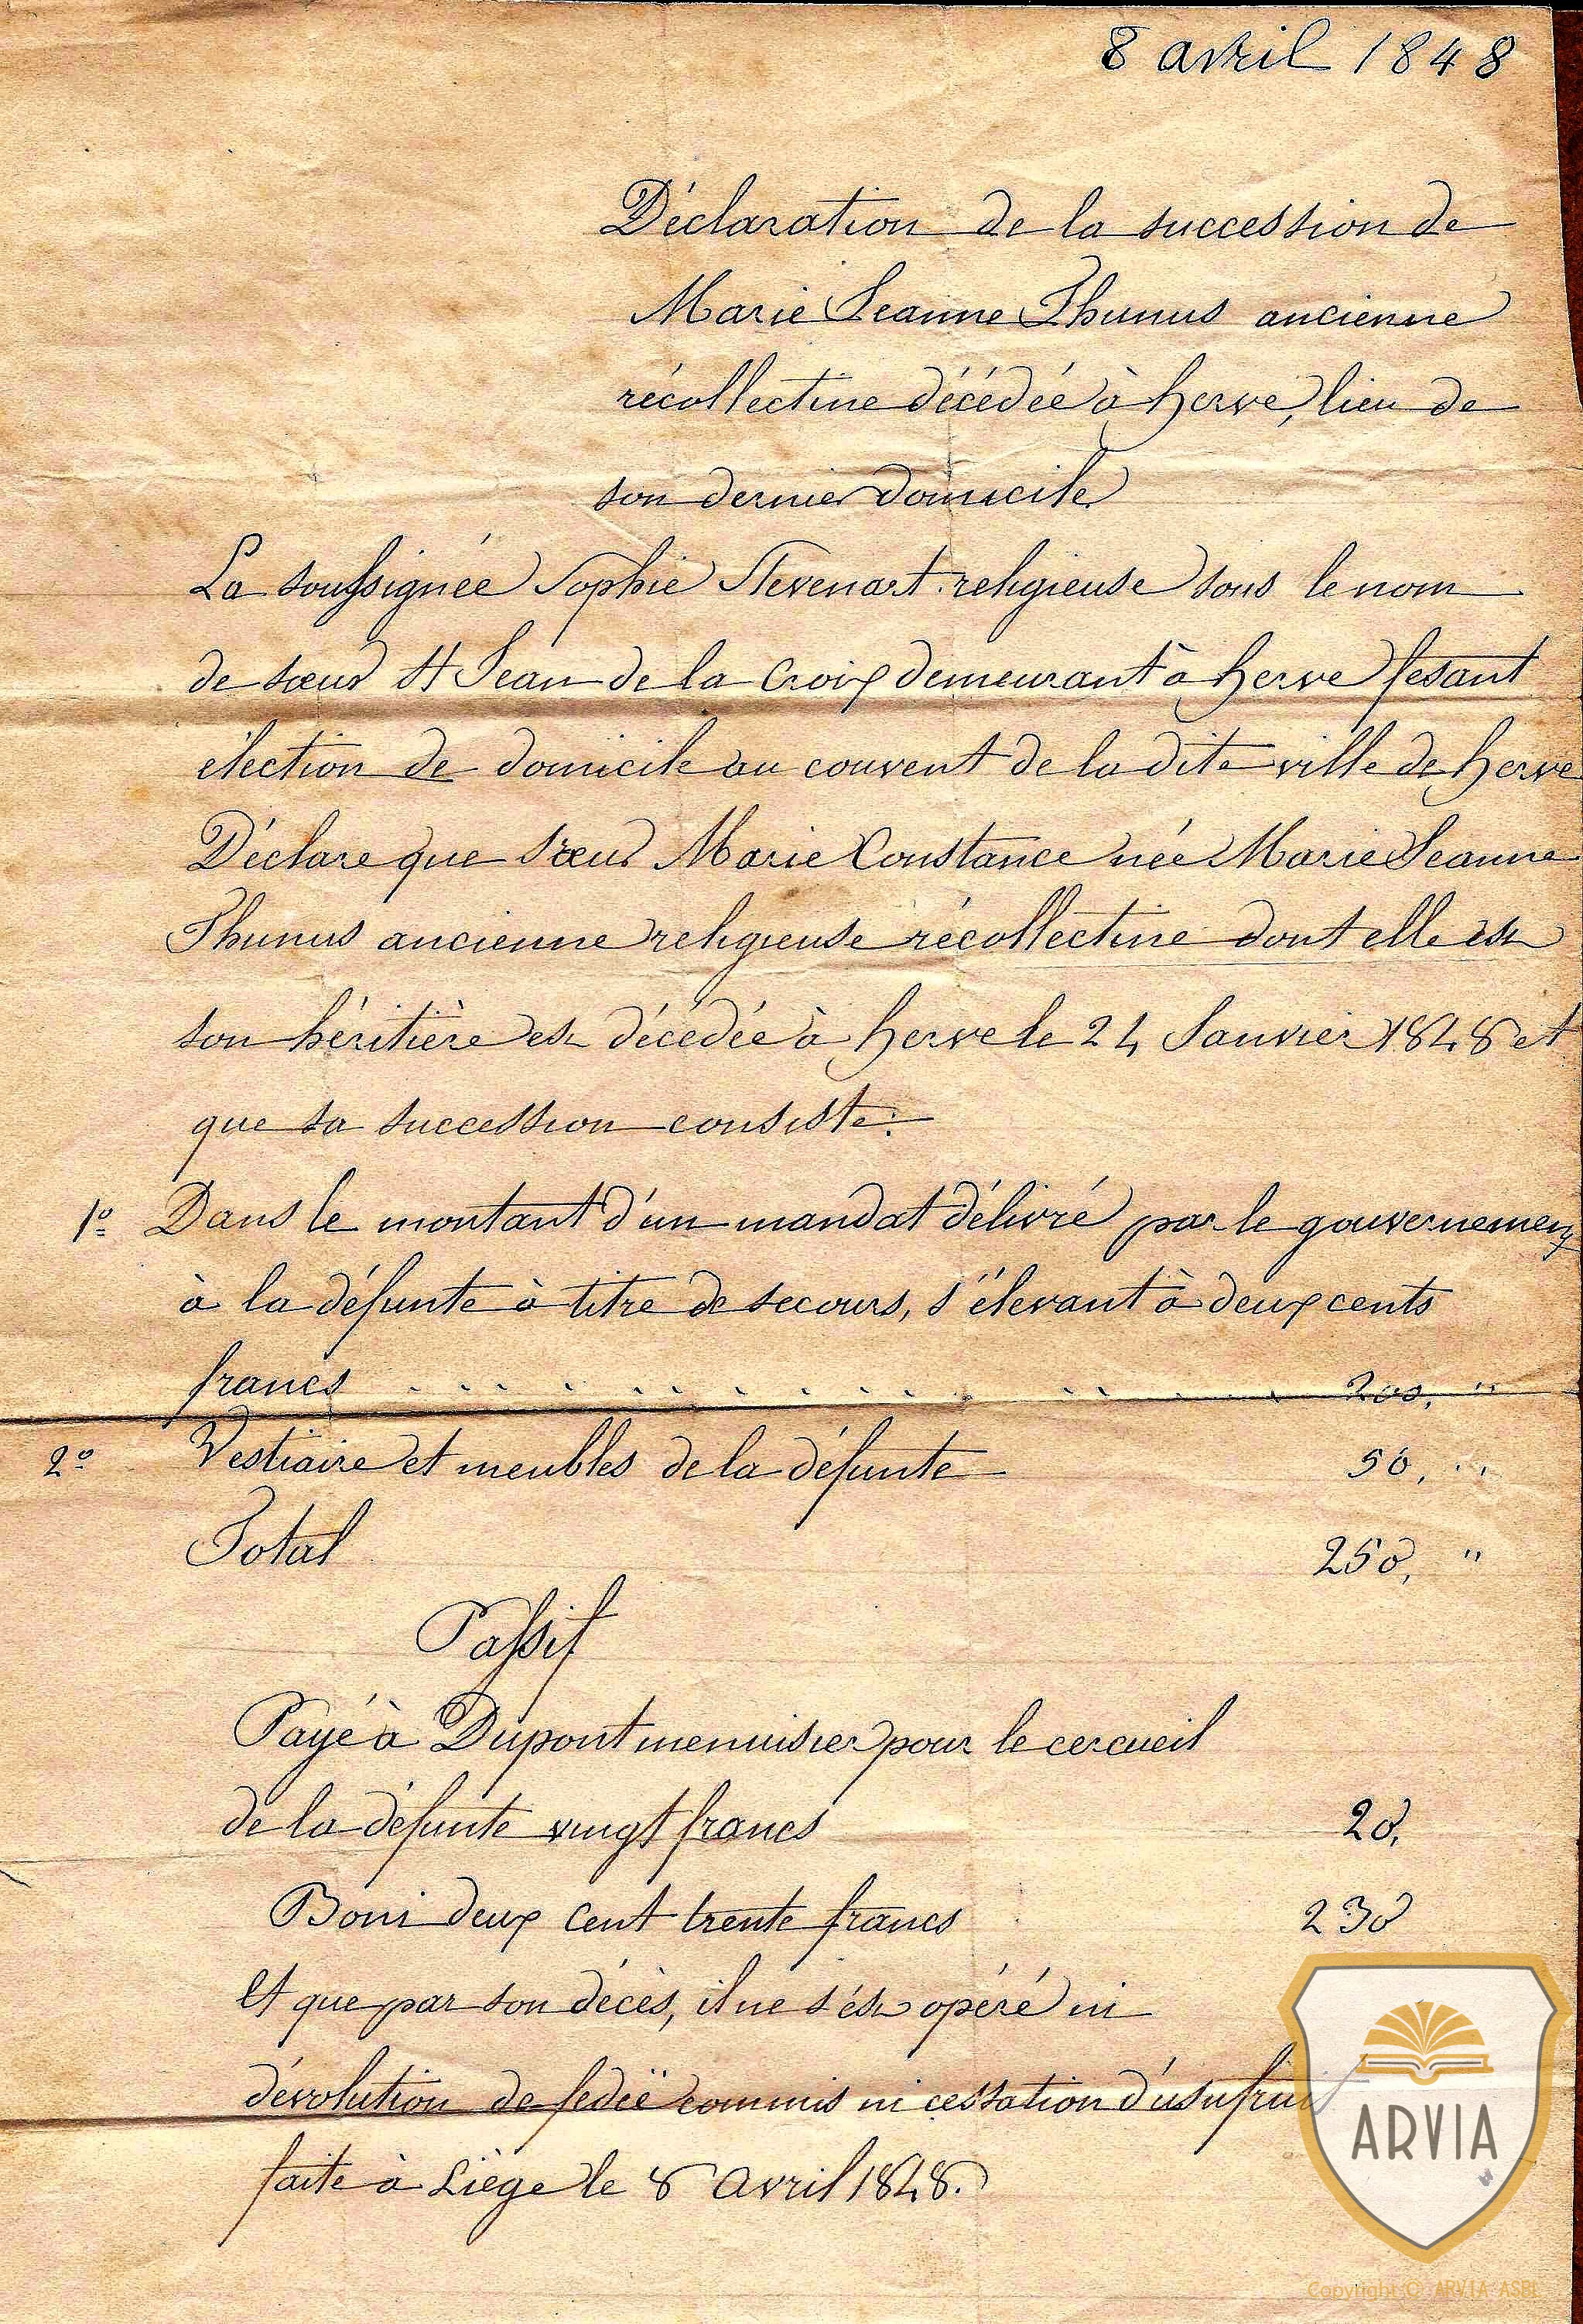 8 avril 1848
Déclaration de la succession de
Marie Jeanne Thunus ancienne
récollectine décédée à herve, lieu de
son dernier domicile
La soussignée Sophie Stevenart religieuse sous le nom
de sœur St Jean de la Croix demeurant à herve fesant
élection de domicile au couvent de la dite ville de herve
Déclare que sœur Marie Constance née Marie Jeanne
Thunus ancienne religieuse récollectine dont elle est
son héritière est décédée à herve le 24 Janvier 1848 et
que sa succession consiste:
1º Dans le montant d'un mandat délivré par le gouvernement
à la défunte à titre de secours, s'élevant à deux cents
francs . . . . . . . . . . . . . . . . 200, "
2º Vestiaire et meubles de la défunte 50, "
Total 250, "
Passif
Payé à Dupont menuisier pour le cercueil
de la défunte vingt francs 20,
Boni deux cent trente francs 230
Et que par son décès, il ne s'est opéré ni
dévolution de fedeï commis ni cessation d'usufruit
faite à Liège le 8 avril 1848.
ARVIA
Copyright © ARVIA ASBL